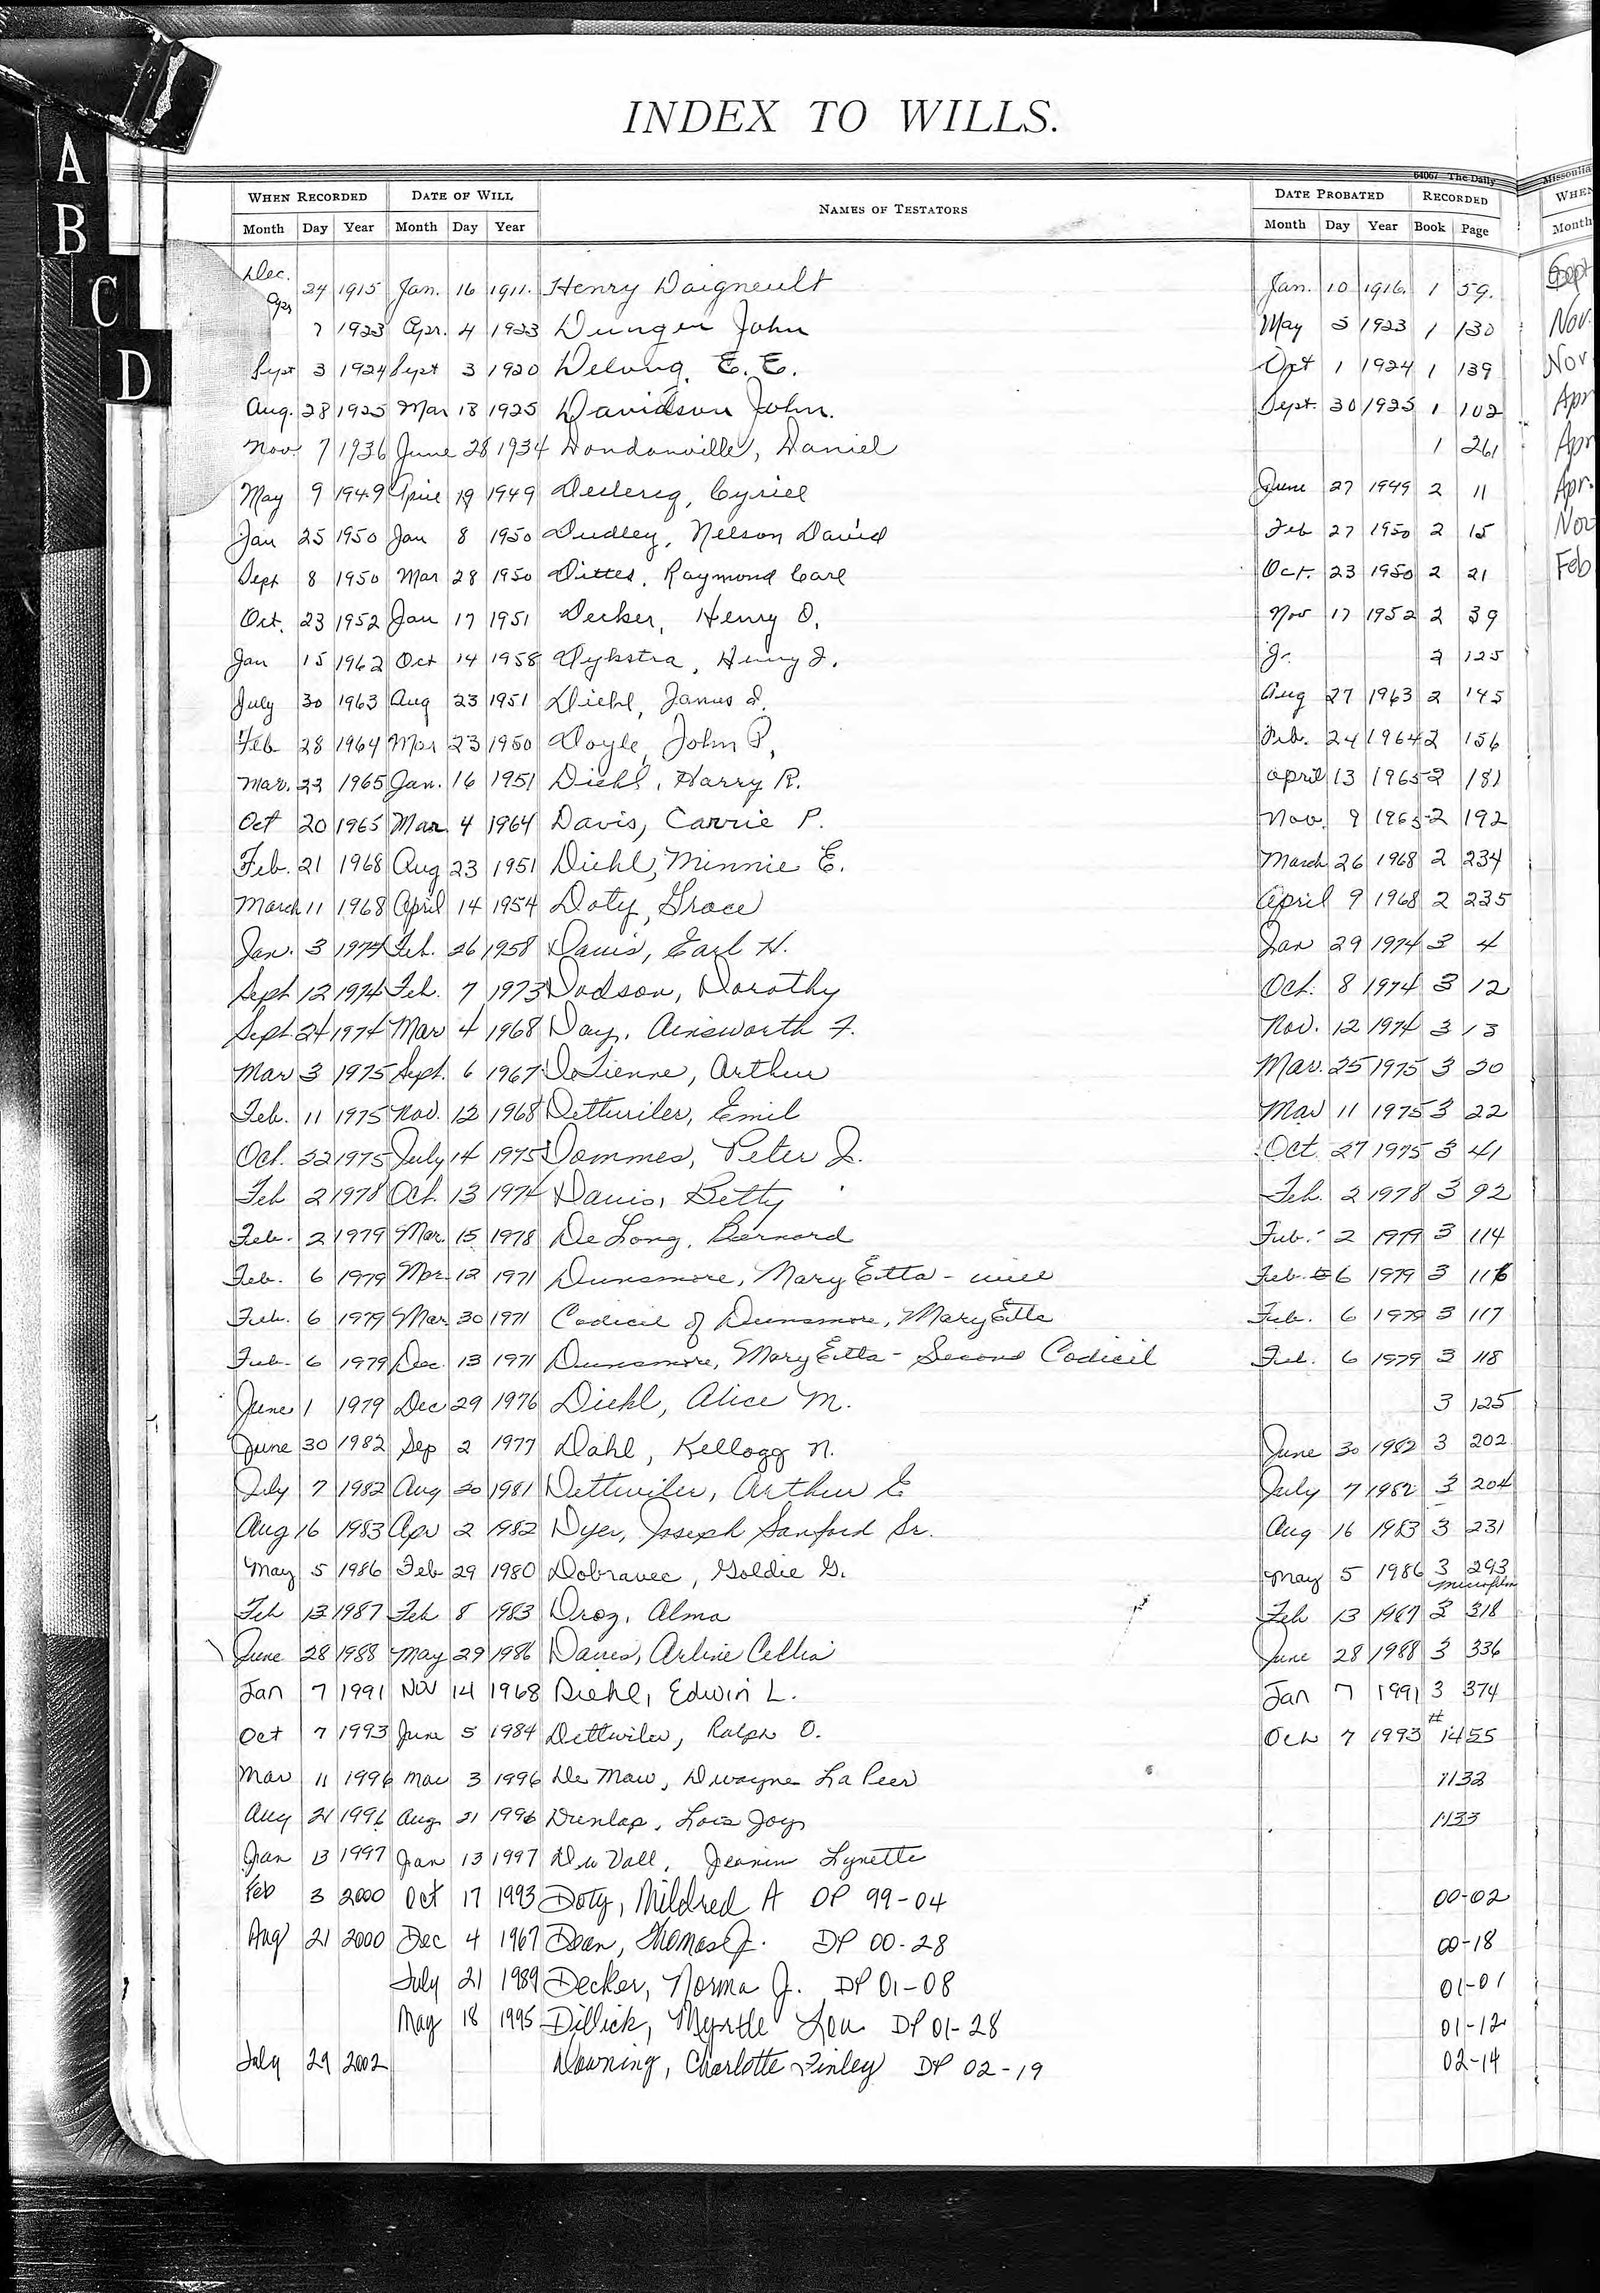 A
B
C
D
INDEX TO WILLS.
64067 The Daily Missoulia
WHEN RECORDED DATE OF WILL NAMES OF TESTATORS DATE PROBATED RECORDED WHEN
Month Day Year Month Day Year Month Day Year Book Page Month
Dec. 24 1915 Jan. 16 1911. Henry Daigneult Jan. 10 1916. 1 59. Sept
Apr 7 1923 Apr. 4 1923 Dunger John May 5 1923 1 130 Nov.
Sept 3 1924 Sept 3 1920 Delong, E. E. Oct 1 1924 1 139 Nov
Aug. 28 1925 Mar 18 1925 Davidson John. Sept. 30 1925 1 102 Apr
Nov. 7 1936 June 28 1934 Dondanville, Daniel 1 261 Apr
May 9 1949 April 19 1949 Declercq, Cyriel June 27 1949 2 11 Apr.
Jan 25 1950 Jan 8 1950 Dudley, Nelson David Feb 27 1950 2 15 Nov
Sept 8 1950 Mar 28 1950 Dittes, Raymond Carl Oct. 23 1950 2 21 Feb
Oct. 23 1952 Jan 17 1951 Decker, Henry O. Nov 17 1952 2 39
Jan 15 1962 Oct 14 1958 Dykstra, Henry J. Jr. 2 125
July 30 1963 Aug 23 1951 Diehl, James I. Aug 27 1963 2 145
Feb 28 1964 Mar 23 1950 Doyle, John P. Feb. 24 1964 2 156
Mar. 22 1965 Jan. 16 1951 Diehl, Harry R. April 13 1965 2 181
Oct 20 1965 Mar. 4 1964 Davis, Carrie P. Nov. 9 1965 2 192
Feb. 21 1968 Aug 23 1951 Diehl, Minnie E. March 26 1968 2 234
March 11 1968 April 14 1954 Doty, Grace April 9 1968 2 235
Jan. 3 1974 Feb. 26 1958 Davis, Earl H. Jan 29 1974 3 4
Sept 12 1974 Feb. 7 1973 Dodson, Dorothy Oct. 8 1974 3 12
Sept 24 1974 Mar 4 1968 Day, Ainsworth F. Nov. 12 1974 3 13
Mar 3 1975 Sept. 6 1967 DeTienne, Arthur Mar. 25 1975 3 20
Feb. 11 1975 Nov. 12 1968 Dettwiler, Emil Mar 11 1975 3 22
Oct. 22 1975 July 14 1975 Dommes, Peter J. Oct 27 1975 3 41
Feb 2 1978 Oct. 13 1974 Davis, Betty Feb. 2 1978 3 92
Feb. 2 1979 Mar. 15 1978 De Long, Bernard Feb. 2 1979 3 114
Feb. 6 1979 Mar 12 1971 Dunsmore, Mary Etta - will Feb. 6 1979 3 116
Feb. 6 1979 Mar. 30 1971 Codicil of Dunsmore, Mary Etta Feb. 6 1979 3 117
Feb. 6 1979 Dec. 13 1971 Dunsmore, Mary Etta - Second Codicil Feb. 6 1979 3 118
June 1 1979 Dec 29 1976 Diehl, Alice M. 3 125
June 30 1982 Sep 2 1977 Dahl, Kellogg N. June 30 1982 3 202
July 7 1982 Aug 20 1981 Dettwiler, Arthur E July 7 1982 3 204
Aug 16 1983 Apr 2 1982 Dyer, Joseph Sanford Sr. Aug 16 1983 3 231
May 5 1986 Feb 29 1980 Dobravec, Goldie G. May 5 1986 3 293
microfilm
Feb 13 1987 Feb 8 1983 Droz, Alma Feb 13 1987 3 318
June 28 1988 May 29 1986 Davis, Arline Cellia June 28 1988 3 336
Jan 7 1991 Nov 14 1968 Diehl, Edwin L. Jan 7 1991 3 374
Oct 7 1993 June 5 1984 Dettwiler, Ralph O. Oct 7 1993 # 1455
Mar 11 1996 Mar 3 1996 De Maw, Dwayne La Peer 1132
Aug 21 1996 Aug. 21 1996 Dunlap, Lois Joy 1133
Jan 13 1997 Jan 13 1997 Du Vall, Lynette
Feb 3 2000 Oct 17 1993 Doty, Mildred A DP 99-04 00-02
Aug 21 2000 Dec 4 1967 Dean, Thomas J. DP 00-28 00-18
July 21 1989 Decker, Norma J. DP 01-08 01-01
May 18 1995 Dillick, Myrtle Lou DP 01-28 01-12
July 29 2002 Downing, Charlotte Finley DP 02-19 02-14